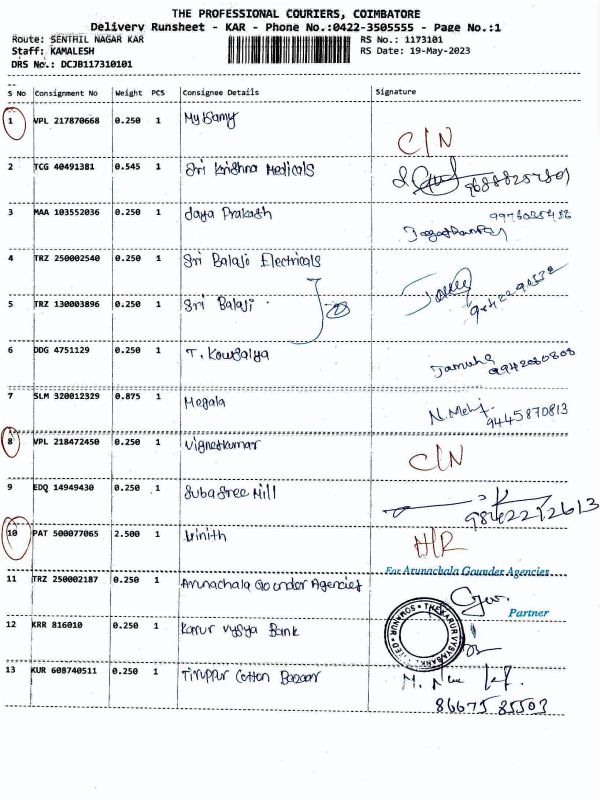 THE PROFESSIONAL COURIERS, COIMBATORE
Delivery Runsheet - KAR - Phone No.:0422-3505555 - Page No.:1
Route: SENTHIL NAGAR KAR RS No.: 1173101
Staff: KAMALESH RS Date: 19-May-2023
DRS No.: DCJB117310101
S No Consignment No Weight PCS Consignee Details Signature
1 VPL 217870668 0.250 1 C/N
2 TCG 40491381 0.545 1 Sri Krishna Medicals
3 MAA 103552036 0.250 1 daya Prakash
4 TRZ 250002540 0.250 1 Sri Balaji Electricals
5 TRZ 130003896 0.250 1 Sri Balaji
6 DDG 4751129 0.250 1 T. Kowsalya
7 SLM 320012329 0.875 1 Megala 9445870813
8 VPL 218472450 0.250 1 Vignetkumar C/N
9 EDQ 14949430 0.250 1 Suba Sree Mill
10 PAT 500077065 2.500 1 Vinith
For Arunachala Gounder Agencies
11 TRZ 250002187 0.250 1 Arunachala Gounder Agencies
Partner
12 KRR 816010 0.250 1 Karur Vysya Bank
13 KUR 608740511 0.250 1 Tiruppur Cotton Bazaar
86675 85503